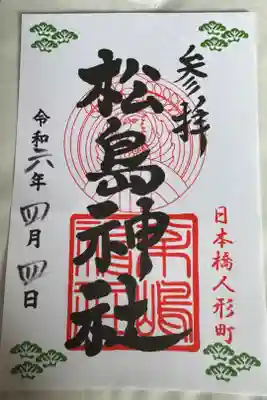 参拝
松島神社
日本橋人形町
令和六年四月四日